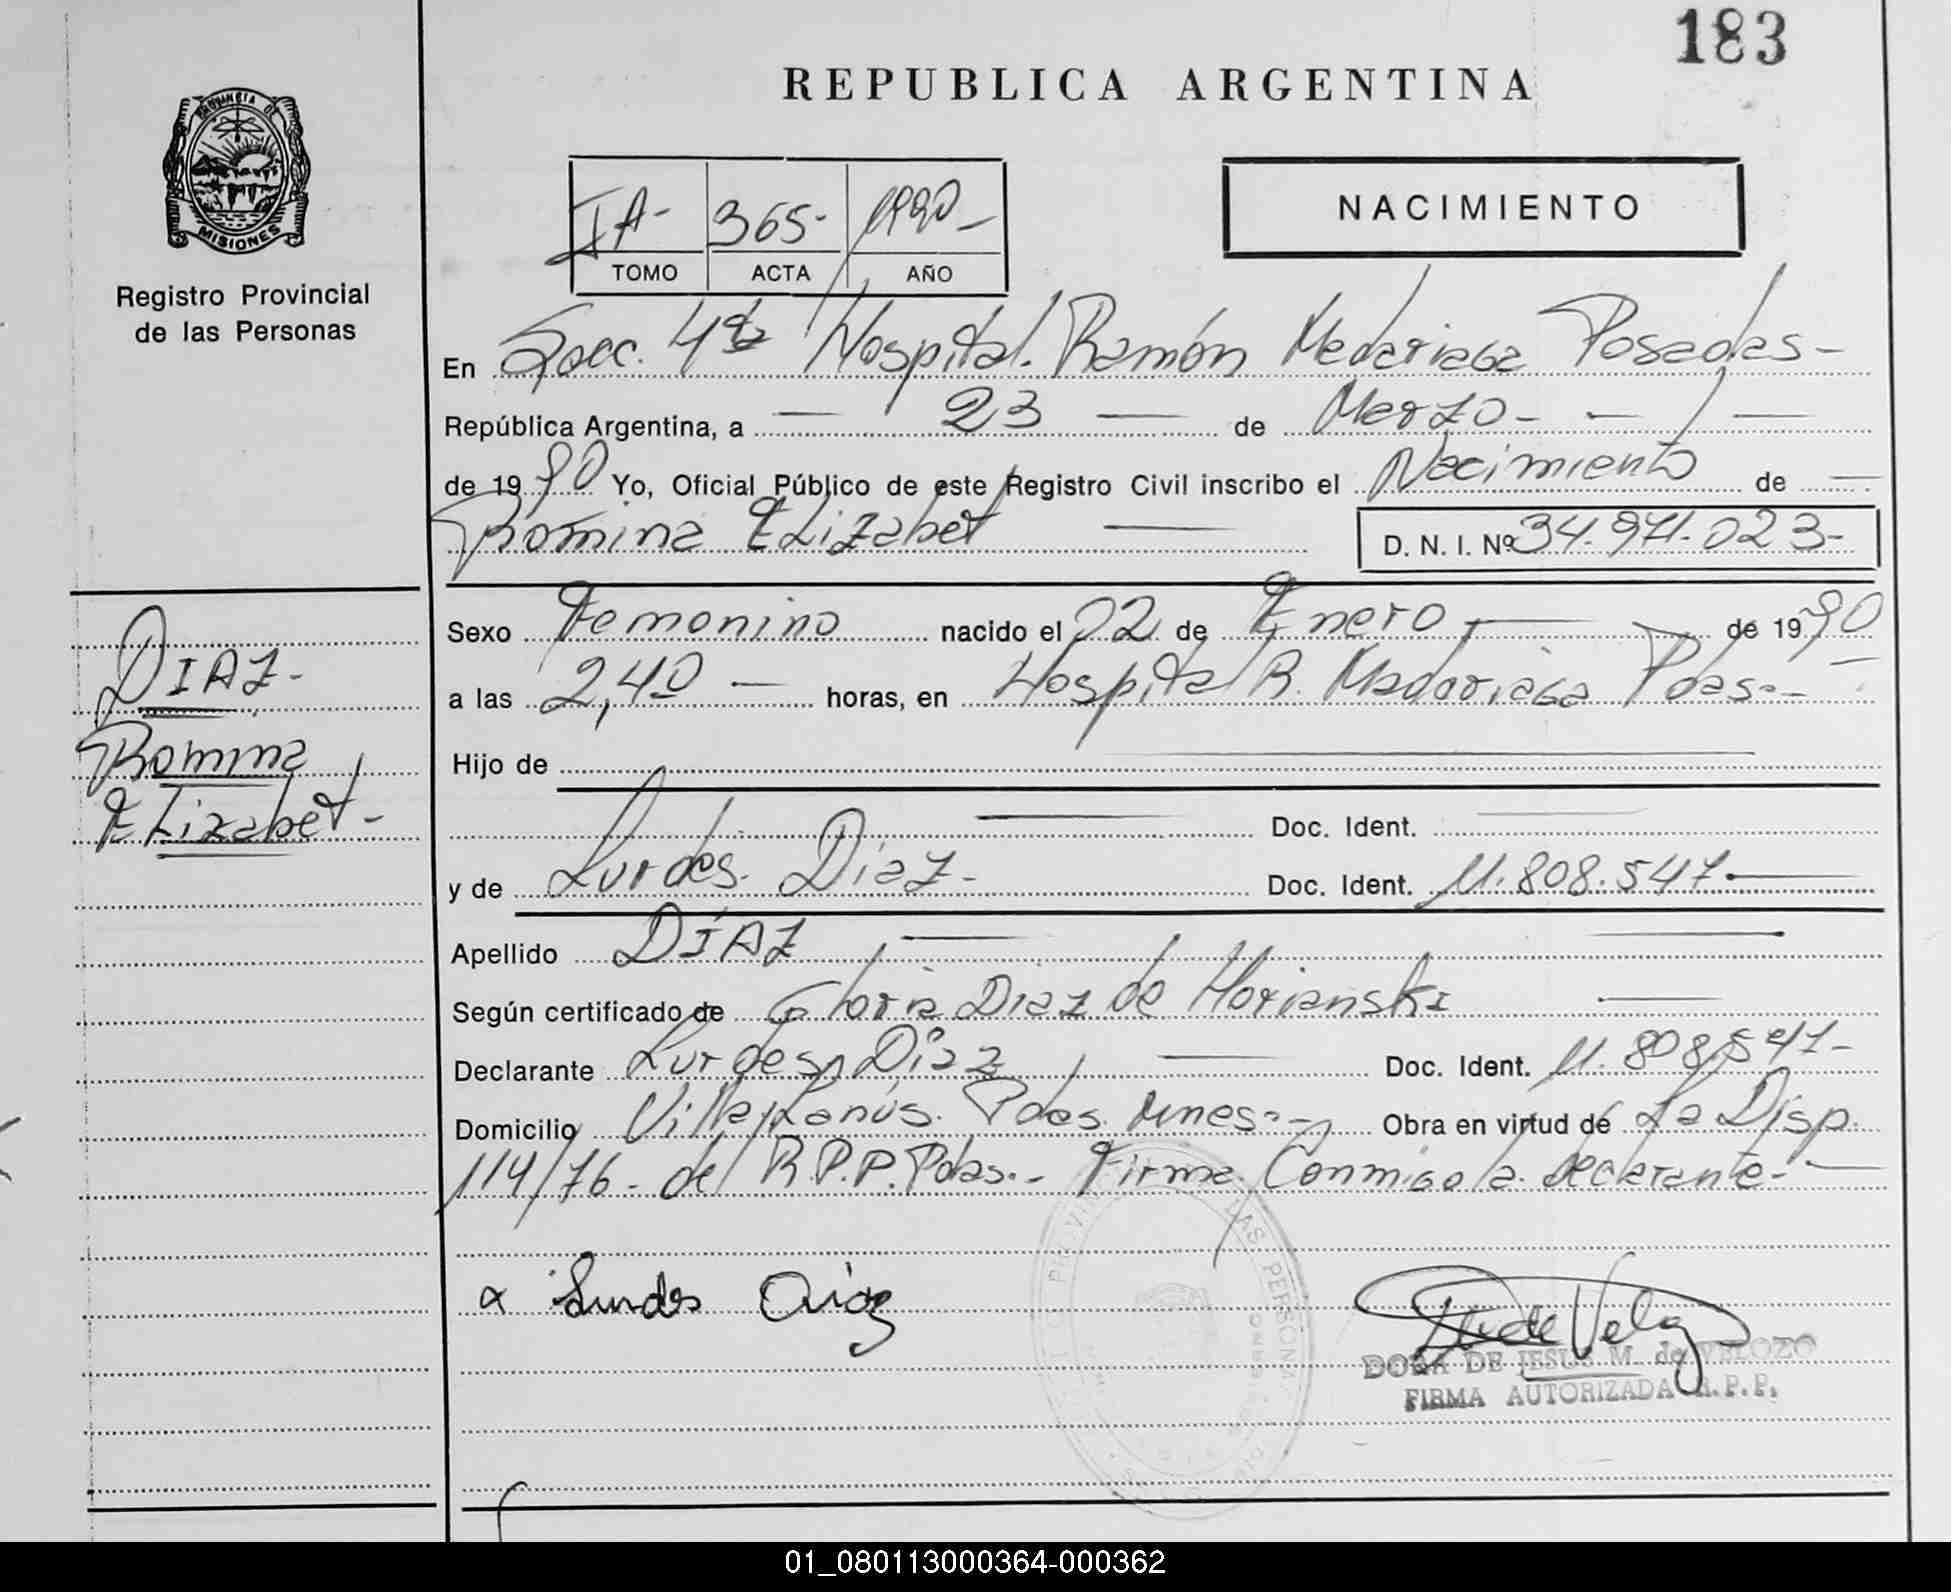 183
REPUBLICA ARGENTINA
PROVINCIA DE
MISIONES
Registro Provincial
de las Personas
IA- 365- 1990-
TOMO ACTA AÑO
NACIMIENTO
En Secc. 4ta Hospital. Ramón Madariaga Posadas-
República Argentina, a — 23 — de Marzo- — —
de 1990 Yo, Oficial Público de este Registro Civil inscribo el Nacimiento de —
Romina Elizabet — D. N. I. Nº 34.971.023-
Sexo Femenino nacido el 02 de Enero — de 1990
a las 2,40 — horas, en Hospital R. Madariaga Pdas.-
Hijo de
Doc. Ident.
y de Lurdes. Diaz- Doc. Ident. 11.808.547.
Apellido DÍAZ
Según certificado de Gloria Diaz de Morianski
Declarante Lurdes Diaz Doc. Ident. 11.808.547-
Domicilio Villa Lanús. Pdas. Mnes.- Obra en virtud de La Disp.
114/76- del R.P.P. Pdas.- Firma Conmigo la declarante-
DIAZ-
Romina
Elizabet-
x Lurdes Diaz
DORA DE JESUS M. de VELOZO
FIRMA AUTORIZADA R.P.P.
LAS PERSONA
01_080113000364-000362